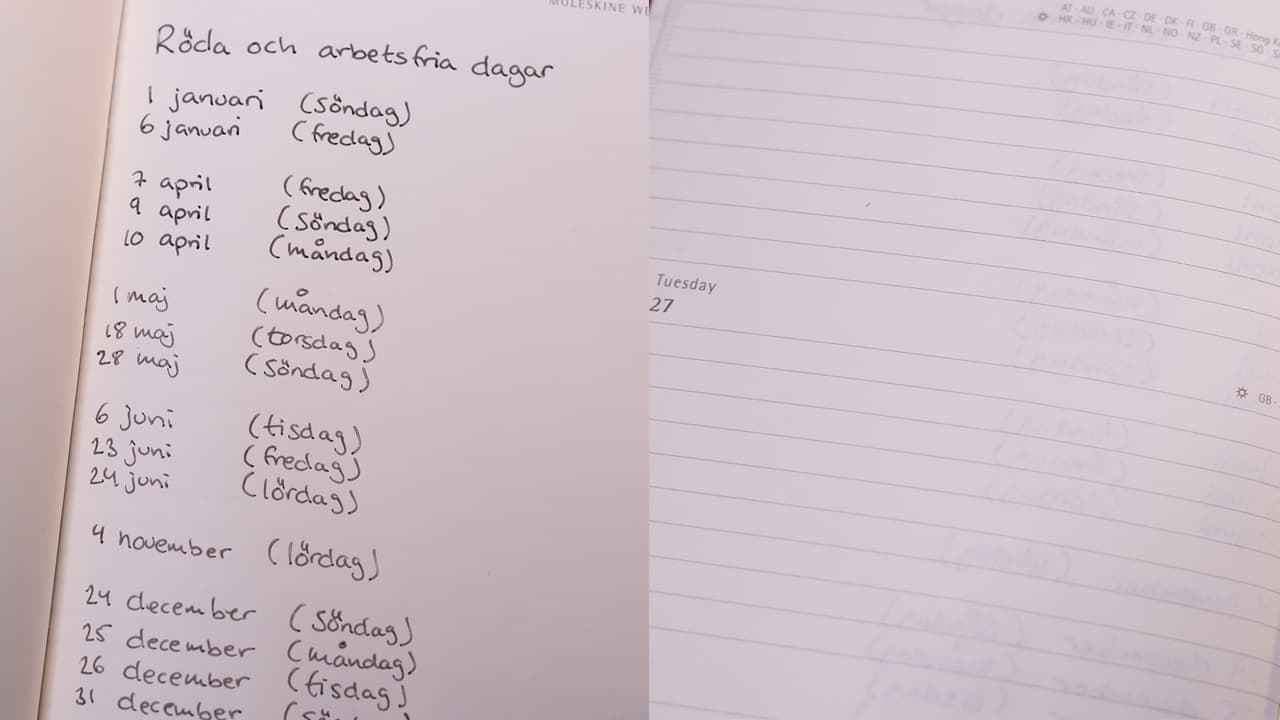 MOLESKINE
Röda och arbetsfria dagar
1 januari (söndag)
6 januari (fredag)
7 april (fredag)
9 april (söndag)
10 april (måndag)
1 maj (måndag)
18 maj (torsdag)
28 maj (söndag)
6 juni (tisdag)
23 juni (fredag)
24 juni (lördag)
4 november (lördag)
24 december (söndag)
25 december (måndag)
26 december (tisdag)
31 december
AT · AU · CA · CZ · DE · DK · FI · GB · GR · Hong
HR · HU · IE · IT · NL · NO · NZ · PL · SE · SG
Tuesday
27
GB